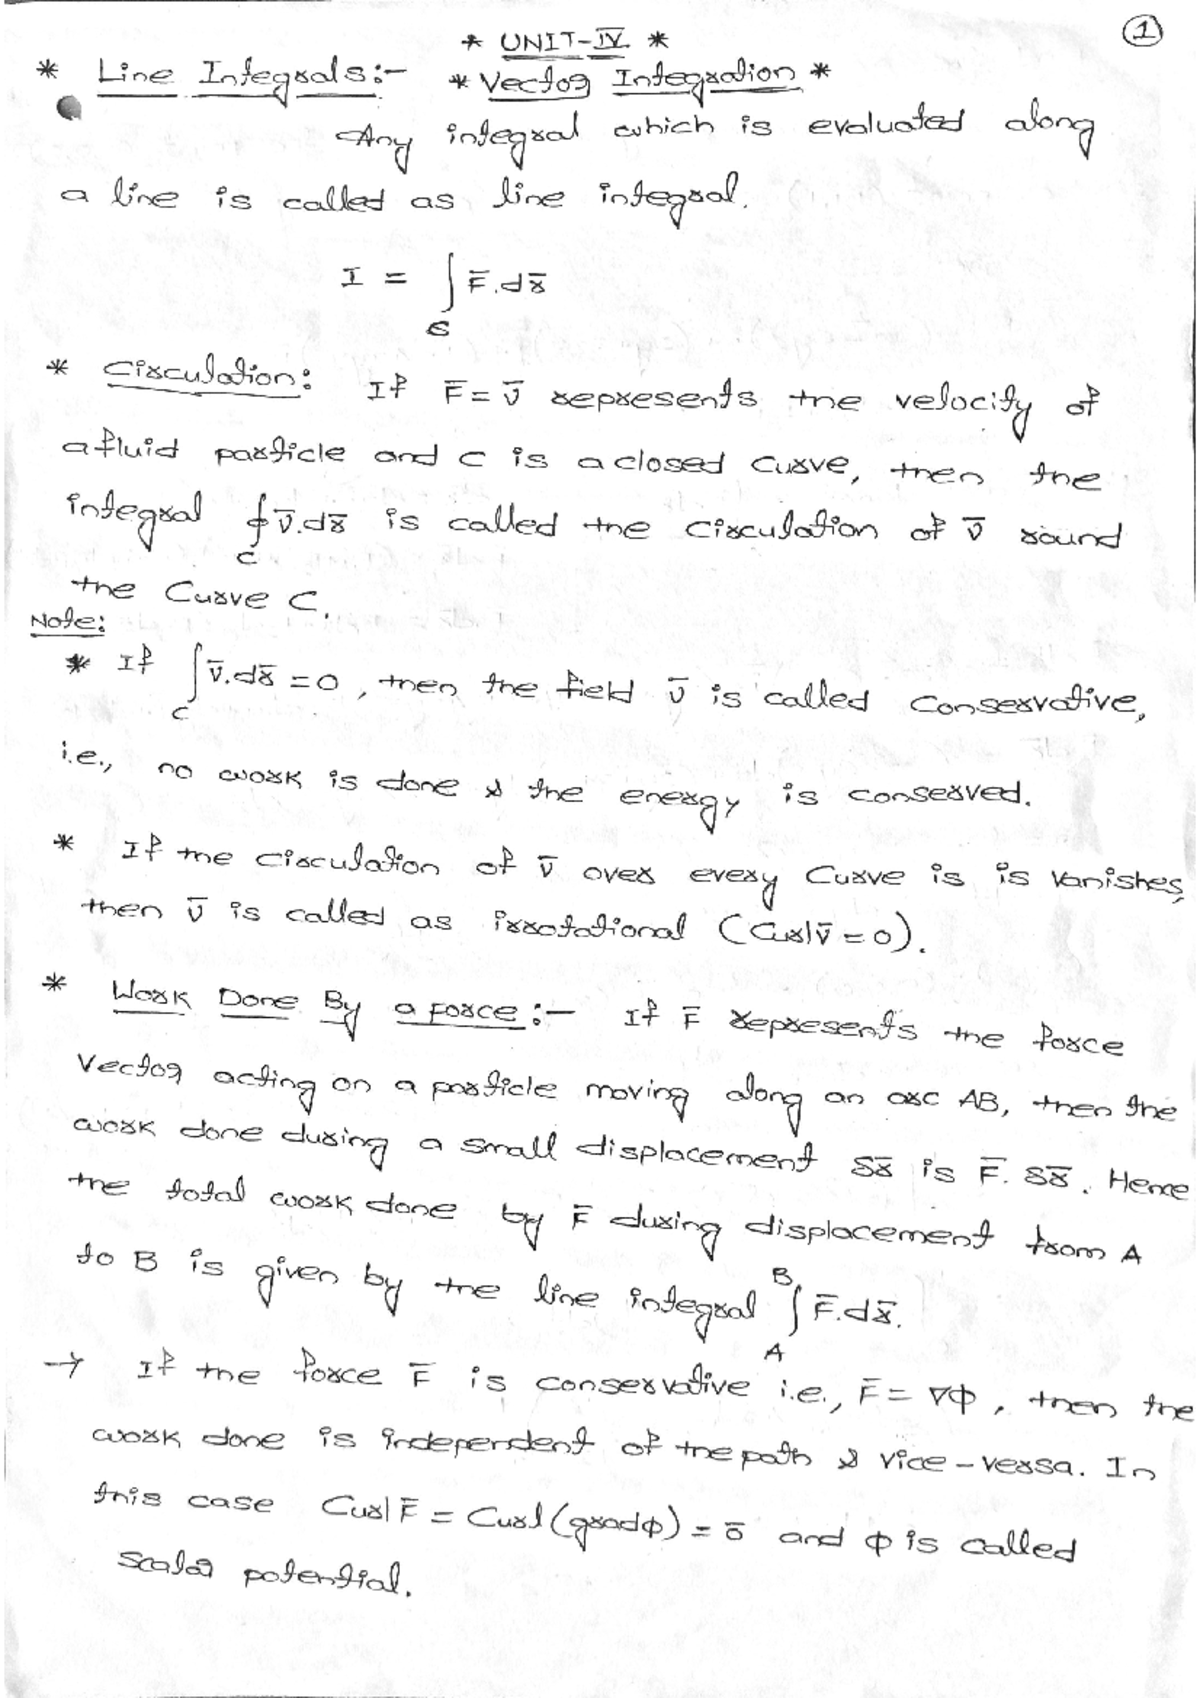 ①
* UNIT-IV *
* Line Integrals:- * Vector Integration *
Any integral which is evaluated along
a line is called as line integral.
I = ∫_C F̄.dr̄
* Circulation: If F̄ = v̄ represents the velocity of
a fluid particle and C is a closed curve, then the
integral ∮_C v̄.dr̄ is called the circulation of v̄ round
the Curve C.
Note:
* If ∫_C v̄.dr̄ = 0, then the field v̄ is called Conservative,
i.e., no work is done & the energy is conserved.
* If the circulation of v̄ over every Curve is is vanishes,
then v̄ is called as irrotational (Curl v̄ = 0).
* Work Done By a Force:- If F̄ represents the force
Vector acting on a particle moving along an arc AB, then the
work done during a small displacement δr̄ is F̄. δr̄. Hence
the total work done by F̄ during displacement from A
to B is given by the line integral ∫_A^B F̄.dr̄.
→ If the force F̄ is conservative i.e., F̄ = ∇Φ, then the
work done is independent of the path & vice-versa. In
this case Curl F̄ = Curl (grad Φ) = ō and Φ is called
scalar potential.